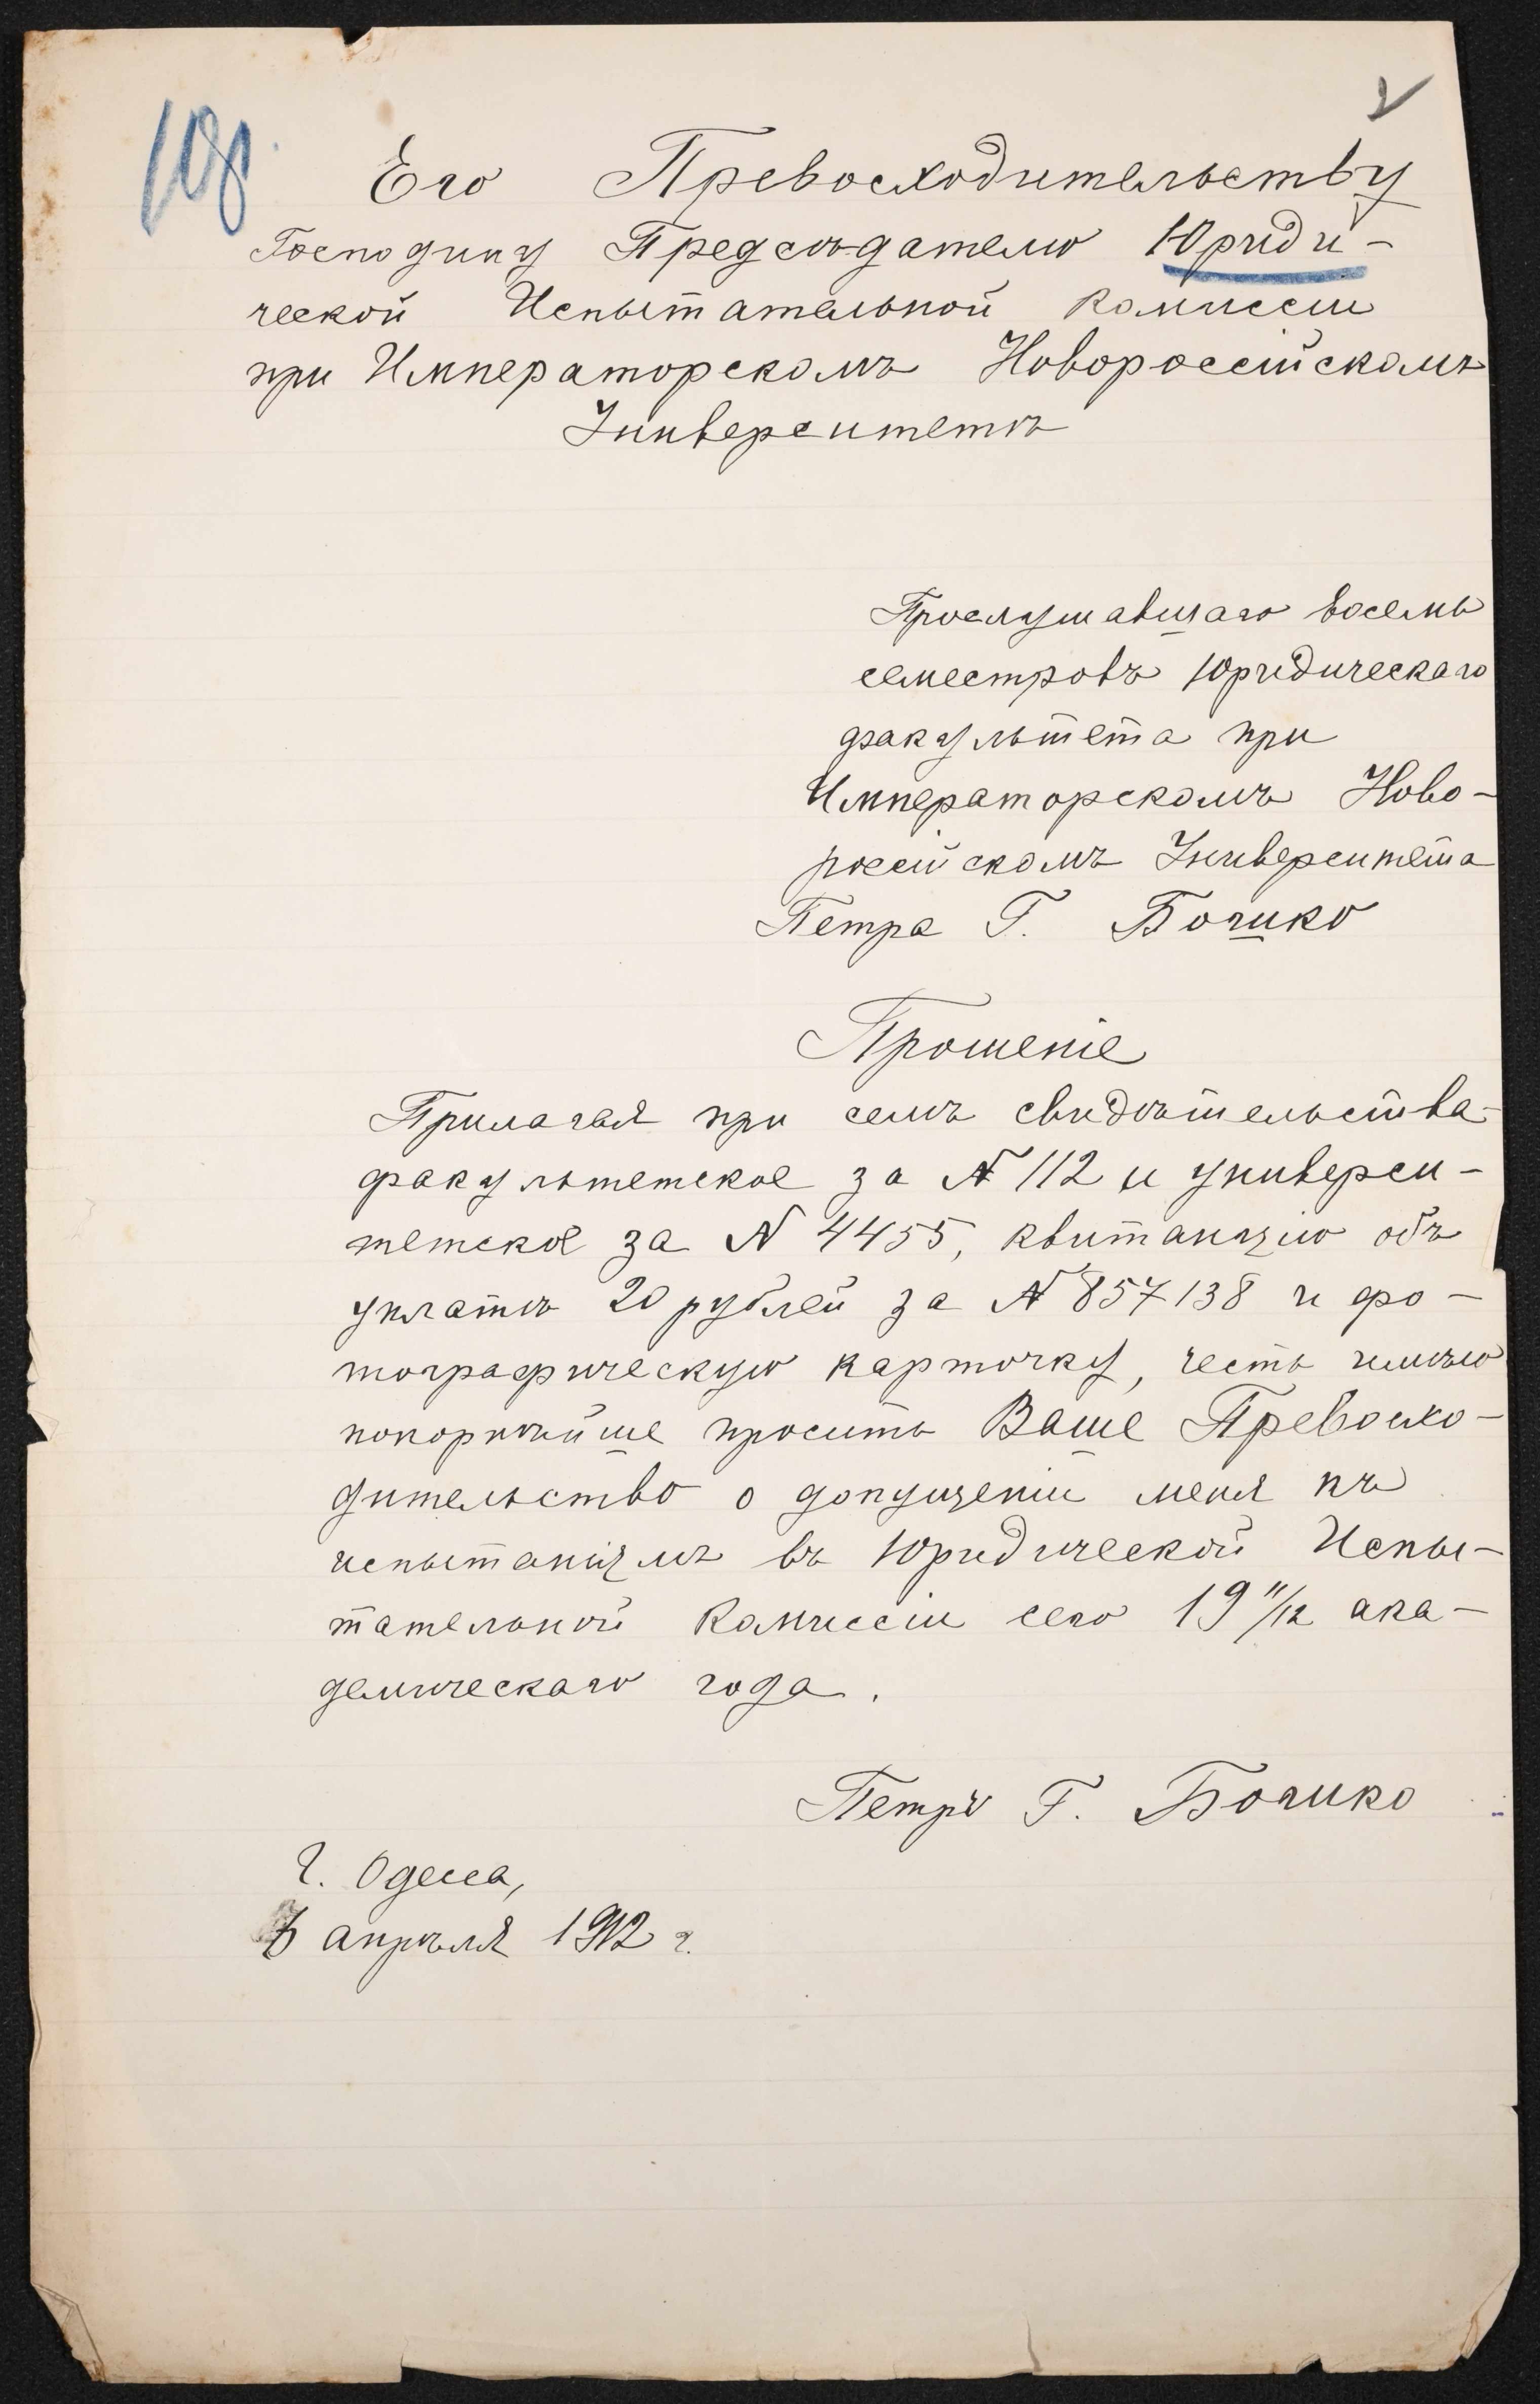 108
Его Превосходительству
Господину Предсѣдателю Юриди-
ческой Испытательной Комиссіи
при Императорскомъ Новороссійскомъ
Университетѣ
Прослушавшаго восемь
семестровъ Юридическаго
факультета при
Императорскомъ Ново-
россійскомъ Университета
Петра Г.
Прошеніе
Прилагая при семъ свидѣтельства
факультетское за № 112 и универси-
тетское за № 4455, квитанцію объ
уплатѣ 20 рублей за № 857138 и фо-
тографическую карточку, честь имѣю
покорнѣйше просить Ваше Превосхо-
дительство о допущеніи меня къ
испытаніямъ въ Юридической Испы-
тательной Комиссіи сего 19 11/12 ака-
демическаго года.
Петръ Г.
Г. Одесса,
апрѣля 1912 г.